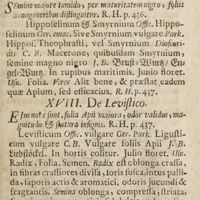 Semine majore tumido, per maturitatem nigro, foliis
à congeneribus distinguitur. R. H. p. 436.
Hipposelinum & Smyrnium Offic. Hippo-
selinum Ger. emac. Sive Smyrnium vulgare Park.
Hippol. Theophrasti, vel Smyrnium Dioscori-
dis C. B. Macerone, quibusdam Smyrnium,
semine magno nigro J. B. Brust-Wurtz/ En-
gel-Wurtz. In rupibus maritimis. Junio floret.
Us. Folia. Vires Alit bene, & præstat eadem
quæ Apium, sed efficacius. R. H. p. 437.
XVIII. De Levistico.
Ejus notæ sunt, folia Apii majora, odor validus, ma-
gnitudo & statura insignis. R. H. p. 437.
Levisticum Offic. vulgare Ger. Park. Ligusti-
cum vulgare C. B. Vulgare foliis Apii J. B.
Liebstöckel. In hortis colitur. Julio floret. Us.
Radix, Folia, Semen. Radix est oblonga, crassa,
in fibras crassiores divisa, foris fusca, intus alba,
tactu, saporis acris & aromatici, odoris jucundi &
fragrantis. Semina oblonga, compressa, striata,